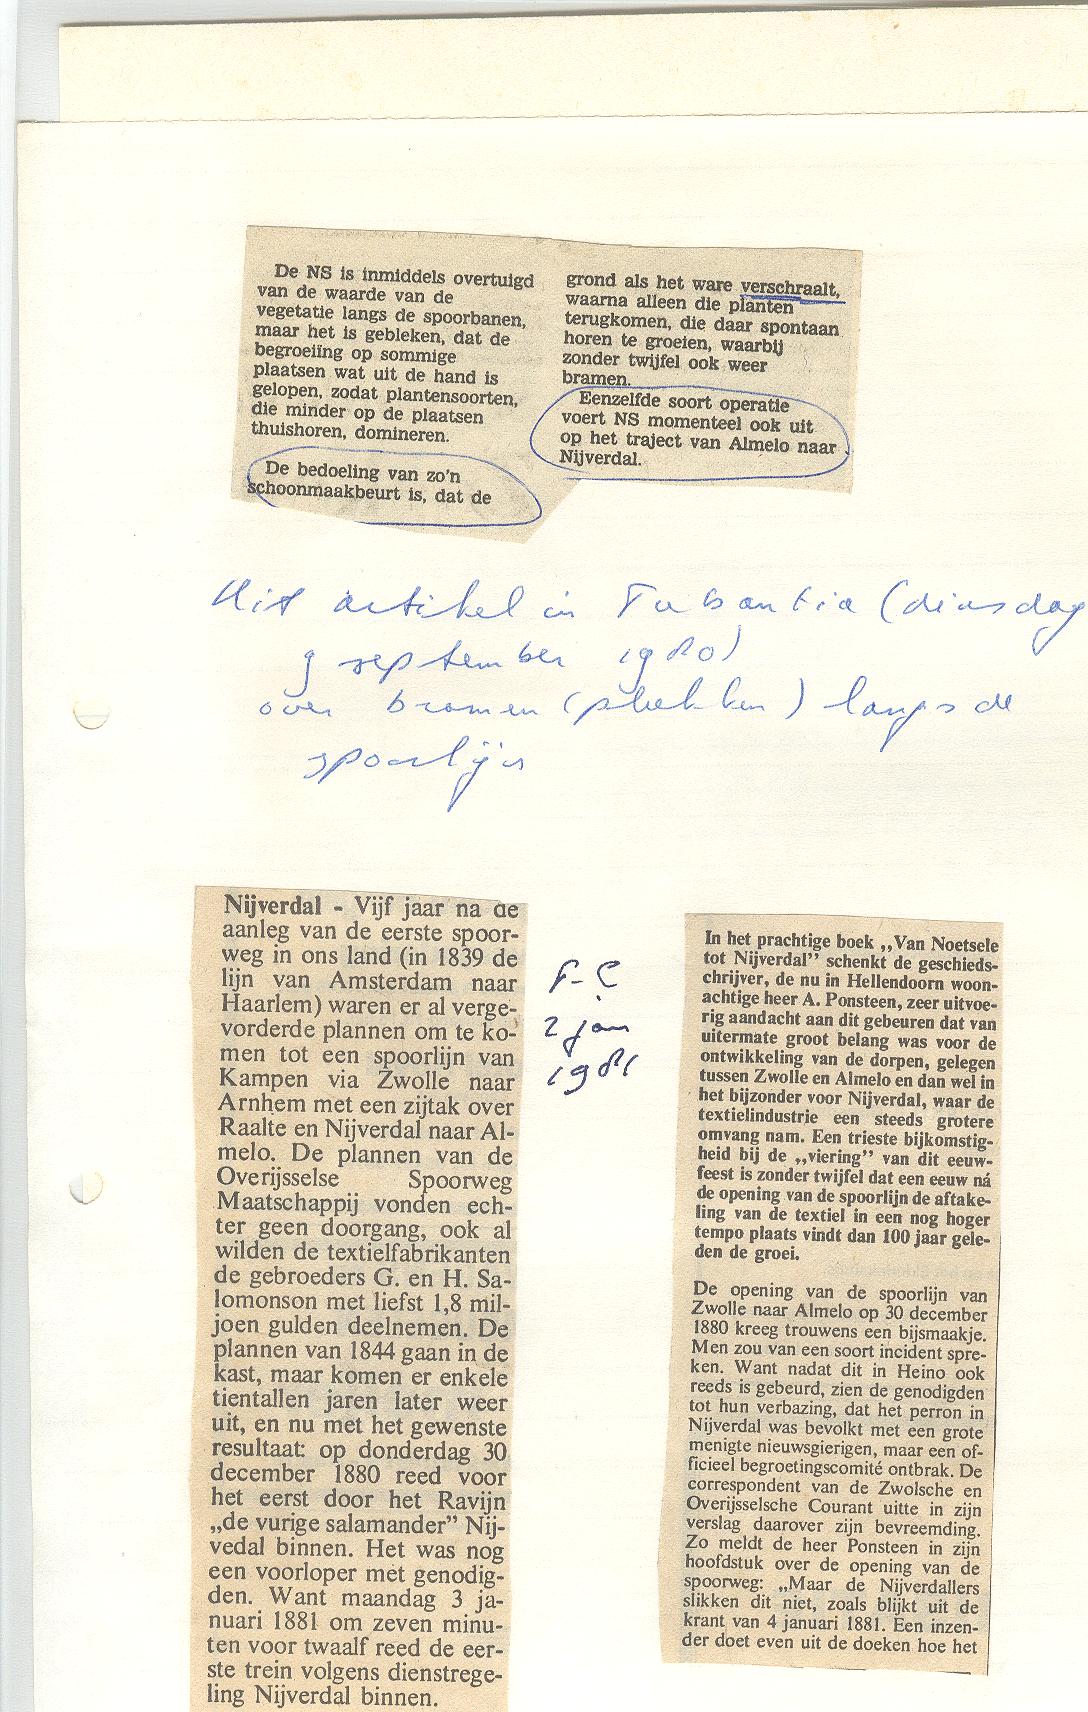 De NS is inmiddels overtuigd
van de waarde van de
vegetatie langs de spoorbanen,
maar het is gebleken, dat de
begroeiing op sommige
plaatsen wat uit de hand is
gelopen, zodat plantensoorten,
die minder op de plaatsen
thuishoren, domineren.
De bedoeling van zo'n
schoonmaakbeurt is, dat de
grond als het ware verschraalt,
waarna alleen die planten
terugkomen, die daar spontaan
horen te groeien, waarbij
zonder twijfel ook weer
bramen.
Eenzelfde soort operatie
voert NS momenteel ook uit
op het traject van Almelo naar
Nijverdal.
Uit artikel in Tubantia (dinsdag
9 september 1980)
over bramen (plekken) langs de
spoorlijn
Nijverdal - Vijf jaar na de
aanleg van de eerste spoor-
weg in ons land (in 1839 de
lijn van Amsterdam naar
Haarlem) waren er al verge-
vorderde plannen om te ko-
men tot een spoorlijn van
Kampen via Zwolle naar
Arnhem met een zijtak over
Raalte en Nijverdal naar Al-
melo. De plannen van de
Overijsselse Spoorweg
Maatschappij vonden ech-
ter geen doorgang, ook al
wilden de textielfabrikanten
de gebroeders G. en H. Sa-
lomonson met liefst 1,8 mil-
joen gulden deelnemen. De
plannen van 1844 gaan in de
kast, maar komen er enkele
tientallen jaren later weer
uit, en nu met het gewenste
resultaat: op donderdag 30
december 1880 reed voor
het eerst door het Ravijn
„de vurige salamander” Nij-
vedal binnen. Het was nog
een voorloper met genodig-
den. Want maandag 3 ja-
nuari 1881 om zeven minu-
ten voor twaalf reed de eer-
ste trein volgens dienstrege-
ling Nijverdal binnen.
T-C
2 jan
1981
In het prachtige boek „Van Noetsele
tot Nijverdal” schenkt de geschied-
schrijver, de nu in Hellendoorn woon-
achtige heer A. Ponsteen, zeer uitvoe-
rig aandacht aan dit gebeuren dat van
uitermate groot belang was voor de
ontwikkeling van de dorpen, gelegen
tussen Zwolle en Almelo en dan wel in
het bijzonder voor Nijverdal, waar de
textielindustrie een steeds grotere
omvang nam. Een trieste bijkomstig-
heid bij de „viering” van dit eeuw-
feest is zonder twijfel dat een eeuw ná
de opening van de spoorlijn de aftake-
ling van de textiel in een nog hoger
tempo plaats vindt dan 100 jaar gele-
den de groei.
De opening van de spoorlijn van
Zwolle naar Almelo op 30 december
1880 kreeg trouwens een bijsmaakje.
Men zou van een soort incident spre-
ken. Want nadat dit in Heino ook
reeds is gebeurd, zien de genodigden
tot hun verbazing, dat het perron in
Nijverdal was bevolkt met een grote
menigte nieuwsgierigen, maar een of-
ficieel begroetingscomité ontbrak. De
correspondent van de Zwolsche en
Overijsselsche Courant uitte in zijn
verslag daarover zijn bevreemding.
Zo meldt de heer Ponsteen in zijn
hoofdstuk over de opening van de
spoorweg: „Maar de Nijverdallers
slikken dit niet, zoals blijkt uit de
krant van 4 januari 1881. Een inzen-
der doet even uit de doeken hoe het